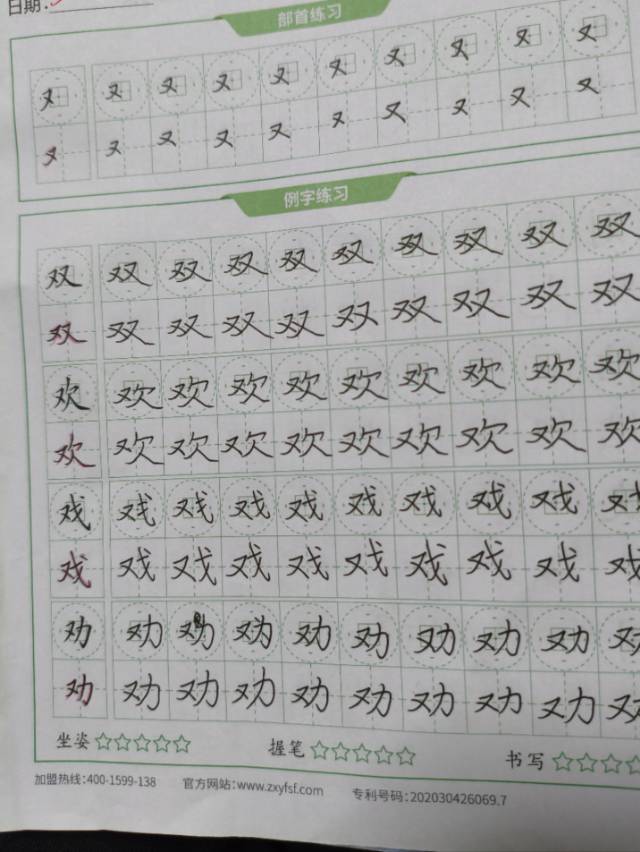 日期:
部首练习
又又又又又又又又又又
又又又又又又又又又又
例字练习
双双双双双双双双双双
双双双双双双双双双双
欢欢欢欢欢欢欢欢欢欢
欢欢欢欢欢欢欢欢欢欢
戏戏戏戏戏戏戏戏戏戏
戏戏戏戏戏戏戏戏戏戏
劝劝劝劝劝劝劝劝劝
劝劝劝劝劝劝劝劝劝
坐姿☆☆☆☆☆ 握笔☆☆☆☆☆ 书写☆☆☆☆
加盟热线:400-1599-138 官方网站:www.zxyfsf.com 专利号码:202030426069.7